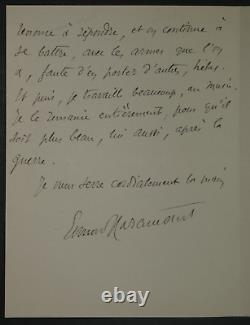 renonce à répondre, et on continue à
se battre, avec les armes que l'on
a, faute d'en porter d'autres, hélas.
Et puis, je travaille beaucoup, au musée.
Je le remanie entièrement, pour qu'il
soit plus beau, lui aussi, après la
guerre.
Je vous serre cordialement la main
Edmond Haraucourt
© ebay